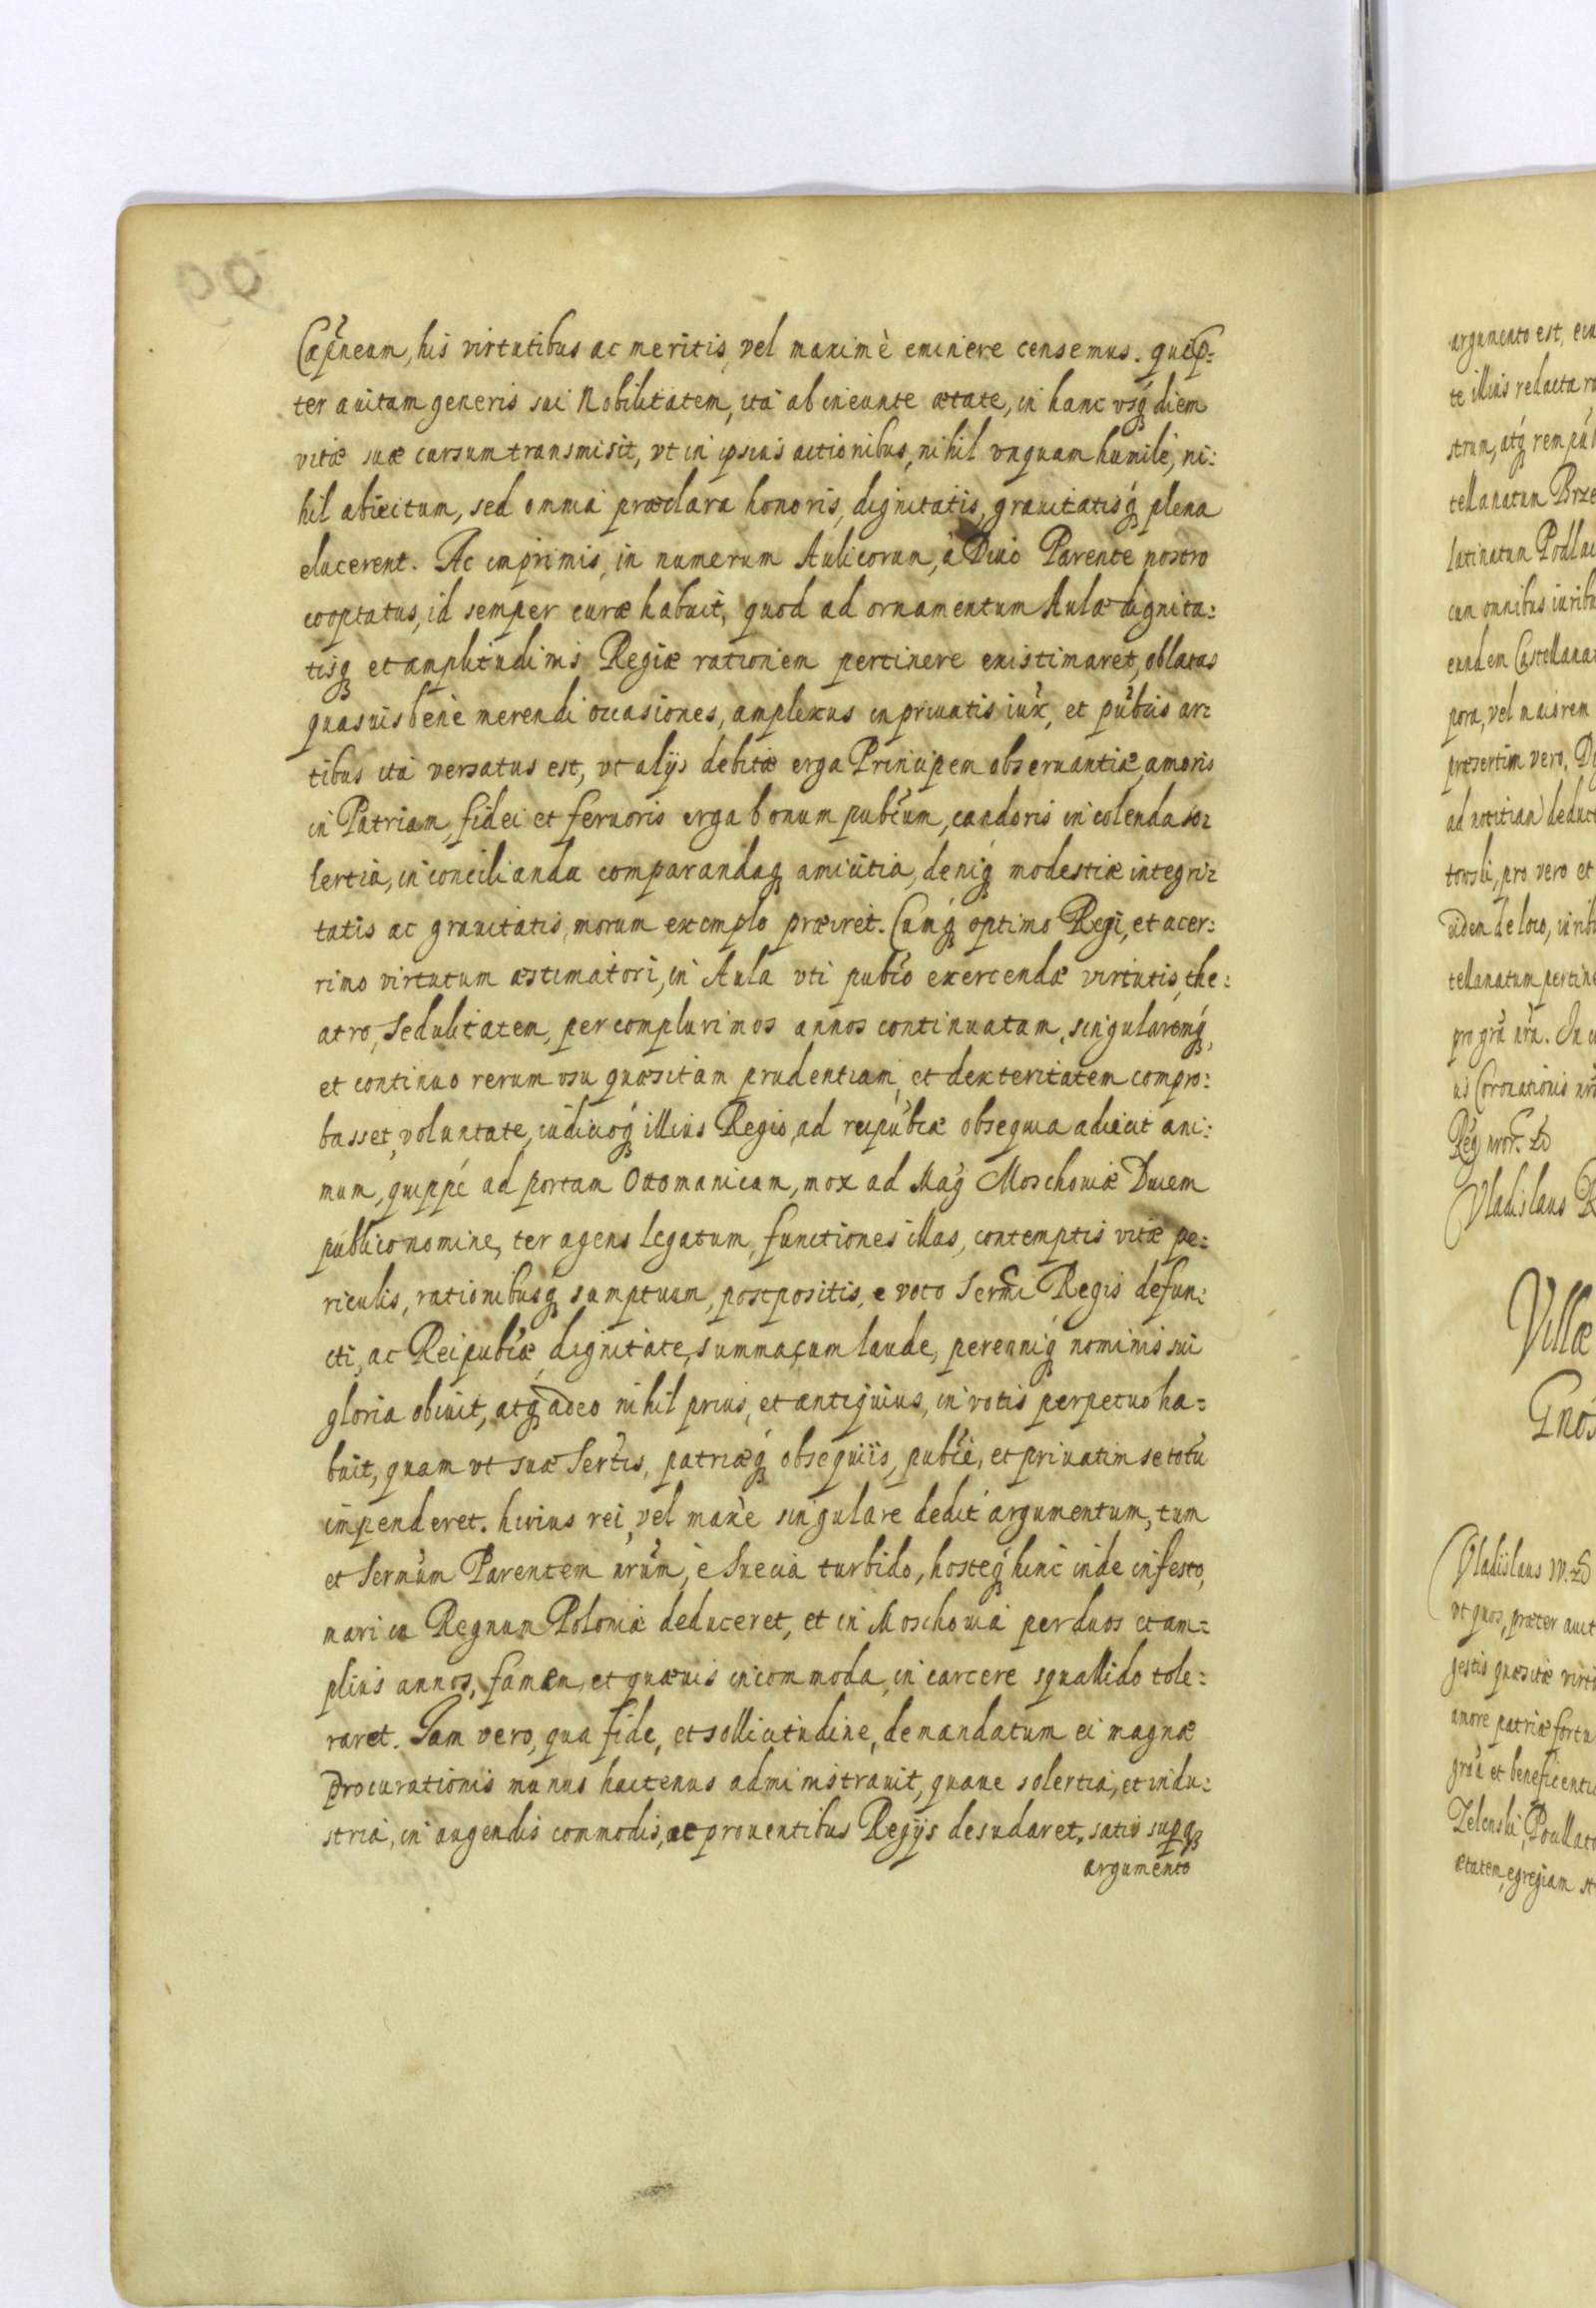 Capneum, his virtutibus ac meritis, vel maximè eminere censemus. qui p̱:
ter auitam generis sui Nobilitatem, ita ab ineunte ætate, in hanc vsq́ȝ diem
vitæ suæ cursum transmisit, vt in ipsius actionibus, nihil vnquam humile, ni:
hil abiectum, sed omnia præclara honoris, dignitatis, grauitatisq́ȝ plena
elucerent. Ac imprimis, in numerum Aulicorum, à Diuo Parente nostro
cooptatus, id semper curæ habuit, quod ad ornamentum Aulæ dignita:
tisqȝ et amplitudinis Regiæ rationem pertinere existimaret, oblatas
quasuis bene merendi occasiones, amplexus in priuatis iux̃, et pubcis ar:
tibus ita versatus est, vt alijs debitæ erga Principem obseruantiæ, amoris
in Patriam, fidei et feruoris erga bonum pubcum, candoris in colenda so:
lertia, in concilianda comparandaqȝ amicitia, deniqȝ modestiæ integri:
tatis ac grauitatis, morum exemplo præiret. Cumq́ȝ optimo Regi, et acer:
rimo virtutum æstimatori, in Aula vti pubco exercendæ virtutis, the:
atro, Sedulitatem, per complurimos annos continuatam, singularemq́ȝ,
et continuo rerum vsu quæsitam prudentiam, et dexteritatem compro:
basset, voluntate, iudicioq́ȝ illius Regis, ad reipubcæ obsequia adiecit ani:
mum, quippé ad portam Ottomanicam, mox ad Mag Moschouiæ Ducem
publico nomine, ter agens legatum, functiones illas, contemptis vitæ pe:
riculis, rationibusq́ȝ sumptuum, postpositis, e voto Sermi Regis defun:
cti, ac Reipubcæ dignitate, summa cum laude, perenniq́ȝ nominis sui
gloria obiuit, atqȝ adeo nihil prius, et antiquius, in votis perpetuo ha:
buit, quam vt suæ Sertis, patriæq́ȝ obsequiis, pubcè, et priuatim se totũ
impenderet. huius rei, vel maxè singulare dedit argumentum, tum
et Sermum Parentem nrum, è Suecia turbido, hosteq́ȝ hinc inde infesto,
mari in Regnum Poloniæ deduceret, et in Moschouia per duos et am:
plius annos, famem, et quæuis incommoda, in carcere squallido tole:
raret. Iam vero, qua fide, et sollicitudine, demandatum ei magnæ
procurationis munus hactenus administrauit, quaue solertia, et indu:
stria, in augendis commodis, ac prouentibus Regijs desudaret, satis supqȝ
argumento
argumento est,
te illius redacta
strum, atq́ȝ
tellanatum
latinatum
cum omnibus
eundem
pora, vel
præsertim vero,
ad notitiam
pro vero et
idem de loco,
tellanatum
pro grã nrã. In
us Coronationis
Reg nror.
Vladislaus
Villæ
Vladislaus IV.
vt quos, præter
gestis quæsitæ
amore patriæ
et
ætatem, egregiam